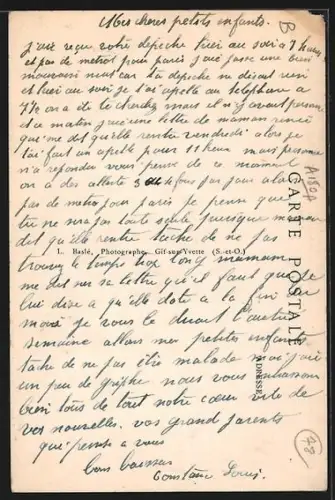 Mes chers petits enfants.
j'ai reçu votre depeche hier au soir a 7 heures
et pas de metro pour paris j'ai passe une bien
mauvaise nuit car ta depeche ne disait rien
et hier au soir je t'ai apelle au telephone a
7½ on a ete le chercher mais il n'y avait personne
et ce matin j'ai une lettre de maman
qui me dit qu'elle rentre vendredi alors je
t'ai fait un apelle pour 11 heur mais personne
n'a repondu vous pense de ce moment
on a des alerte 3 ou 4 fois par jour alors
pas de metro pour paris je pense que
tu ne sera pas toute seule puisque maman
dit qu'elle rentre tache de ne pas
trouver le temps trop long maman
me dit sur sa lettre qu'il faut que je
lui dise a qu'elle date a la fin du
mois je vous le disait l'autre
semaine allons mes petites enfants
tache de ne pas être malade moi j'ai
un peu de grippe nous vous embrassons
bien tous de tout notre cœur vite de
vos nouvelles. vos grand parents
qui pense a vous
bons baisers
Constance Louis
L. Baslé, Photographe, Gif-sur-Yvette (S.-et-O.)
CARTE POSTALE
ADRESSE
B
A180A